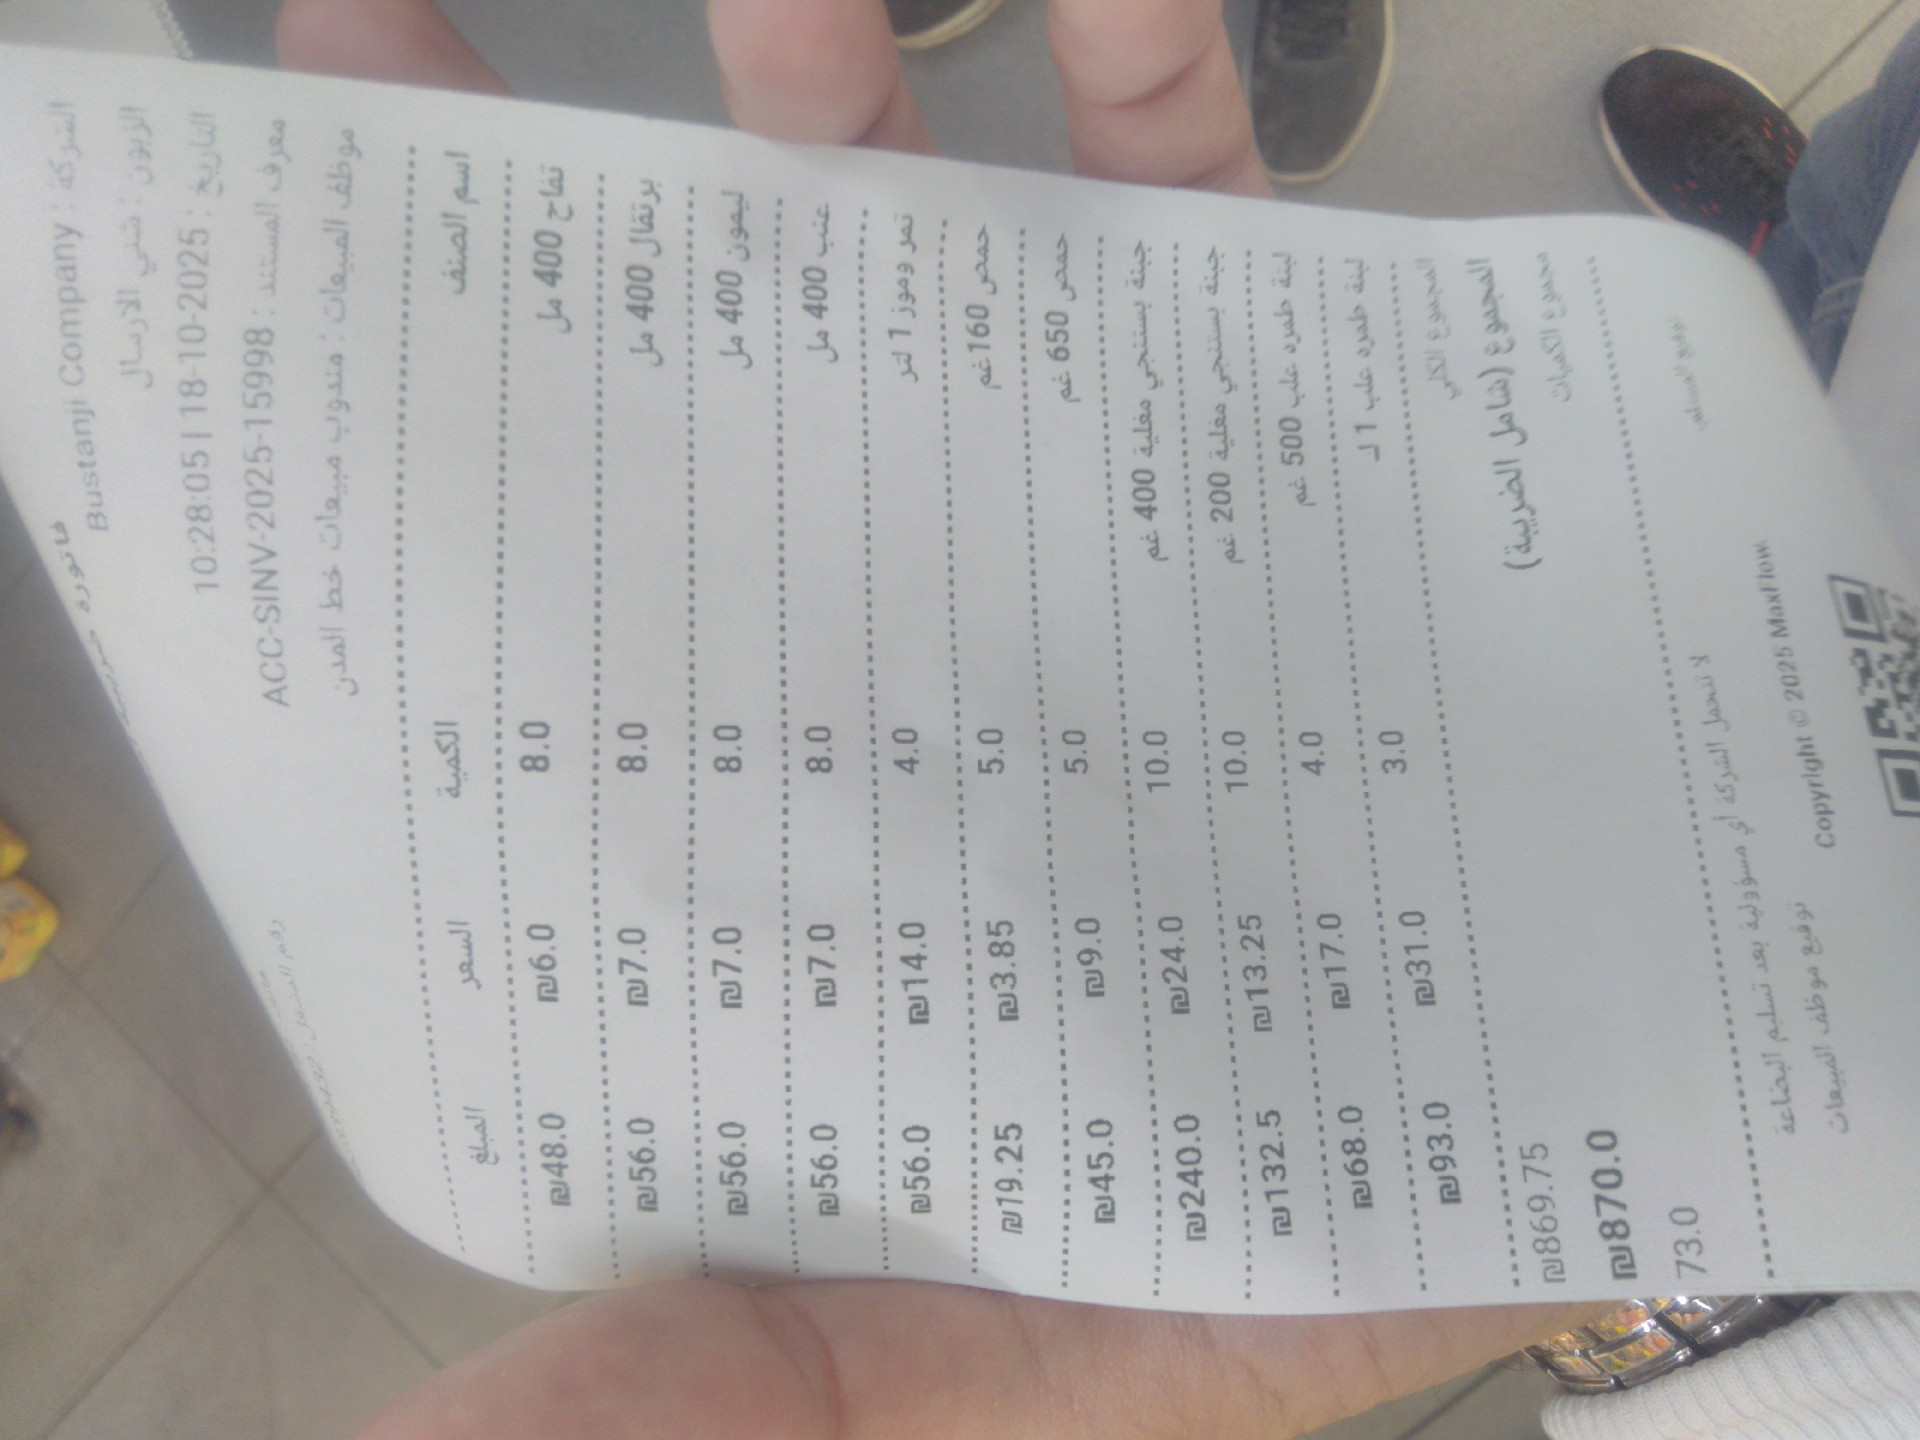 فاتورة
الشركة : Bustanji Company
الزبون : شني الارسال
التاريخ : 18-10-2025 | 10:28:05
معرف المستند : ACC-SINV-2025-15998
موظف المبيعات : مندوب مبيعات خط المدن
اسم الصنف الكمية السعر المبلغ
تفاح 400 مل 8.0 ₪6.0 ₪48.0
برتقال 400 مل 8.0 ₪7.0 ₪56.0
ليمون 400 مل 8.0 ₪7.0 ₪56.0
عنب 400 مل 8.0 ₪7.0 ₪56.0
تمر وموز 1 لتر 4.0 ₪14.0 ₪56.0
حمص 160 غم 5.0 ₪3.85 ₪19.25
حمص 650 غم 5.0 ₪9.0 ₪45.0
جبنة بستنجي مغلية 400 غم 10.0 ₪24.0 ₪240.0
جبنة بستنجي مغلية 200 غم 10.0 ₪13.25 ₪132.5
لبنة طمره علب 500 غم 4.0 ₪17.0 ₪68.0
لبنة طمره علب 1 لـ 3.0 ₪31.0 ₪93.0
المجموع الكلي ₪869.75
المجموع (شامل الضريبة) ₪870.0
مجموع الكميات 73.0
لا تتحمل الشركة أي مسؤولية بعد تسليم البضاعة
توقيع المستلم توقيع موظف المبيعات
Copyright © 2025 MaxFlow.